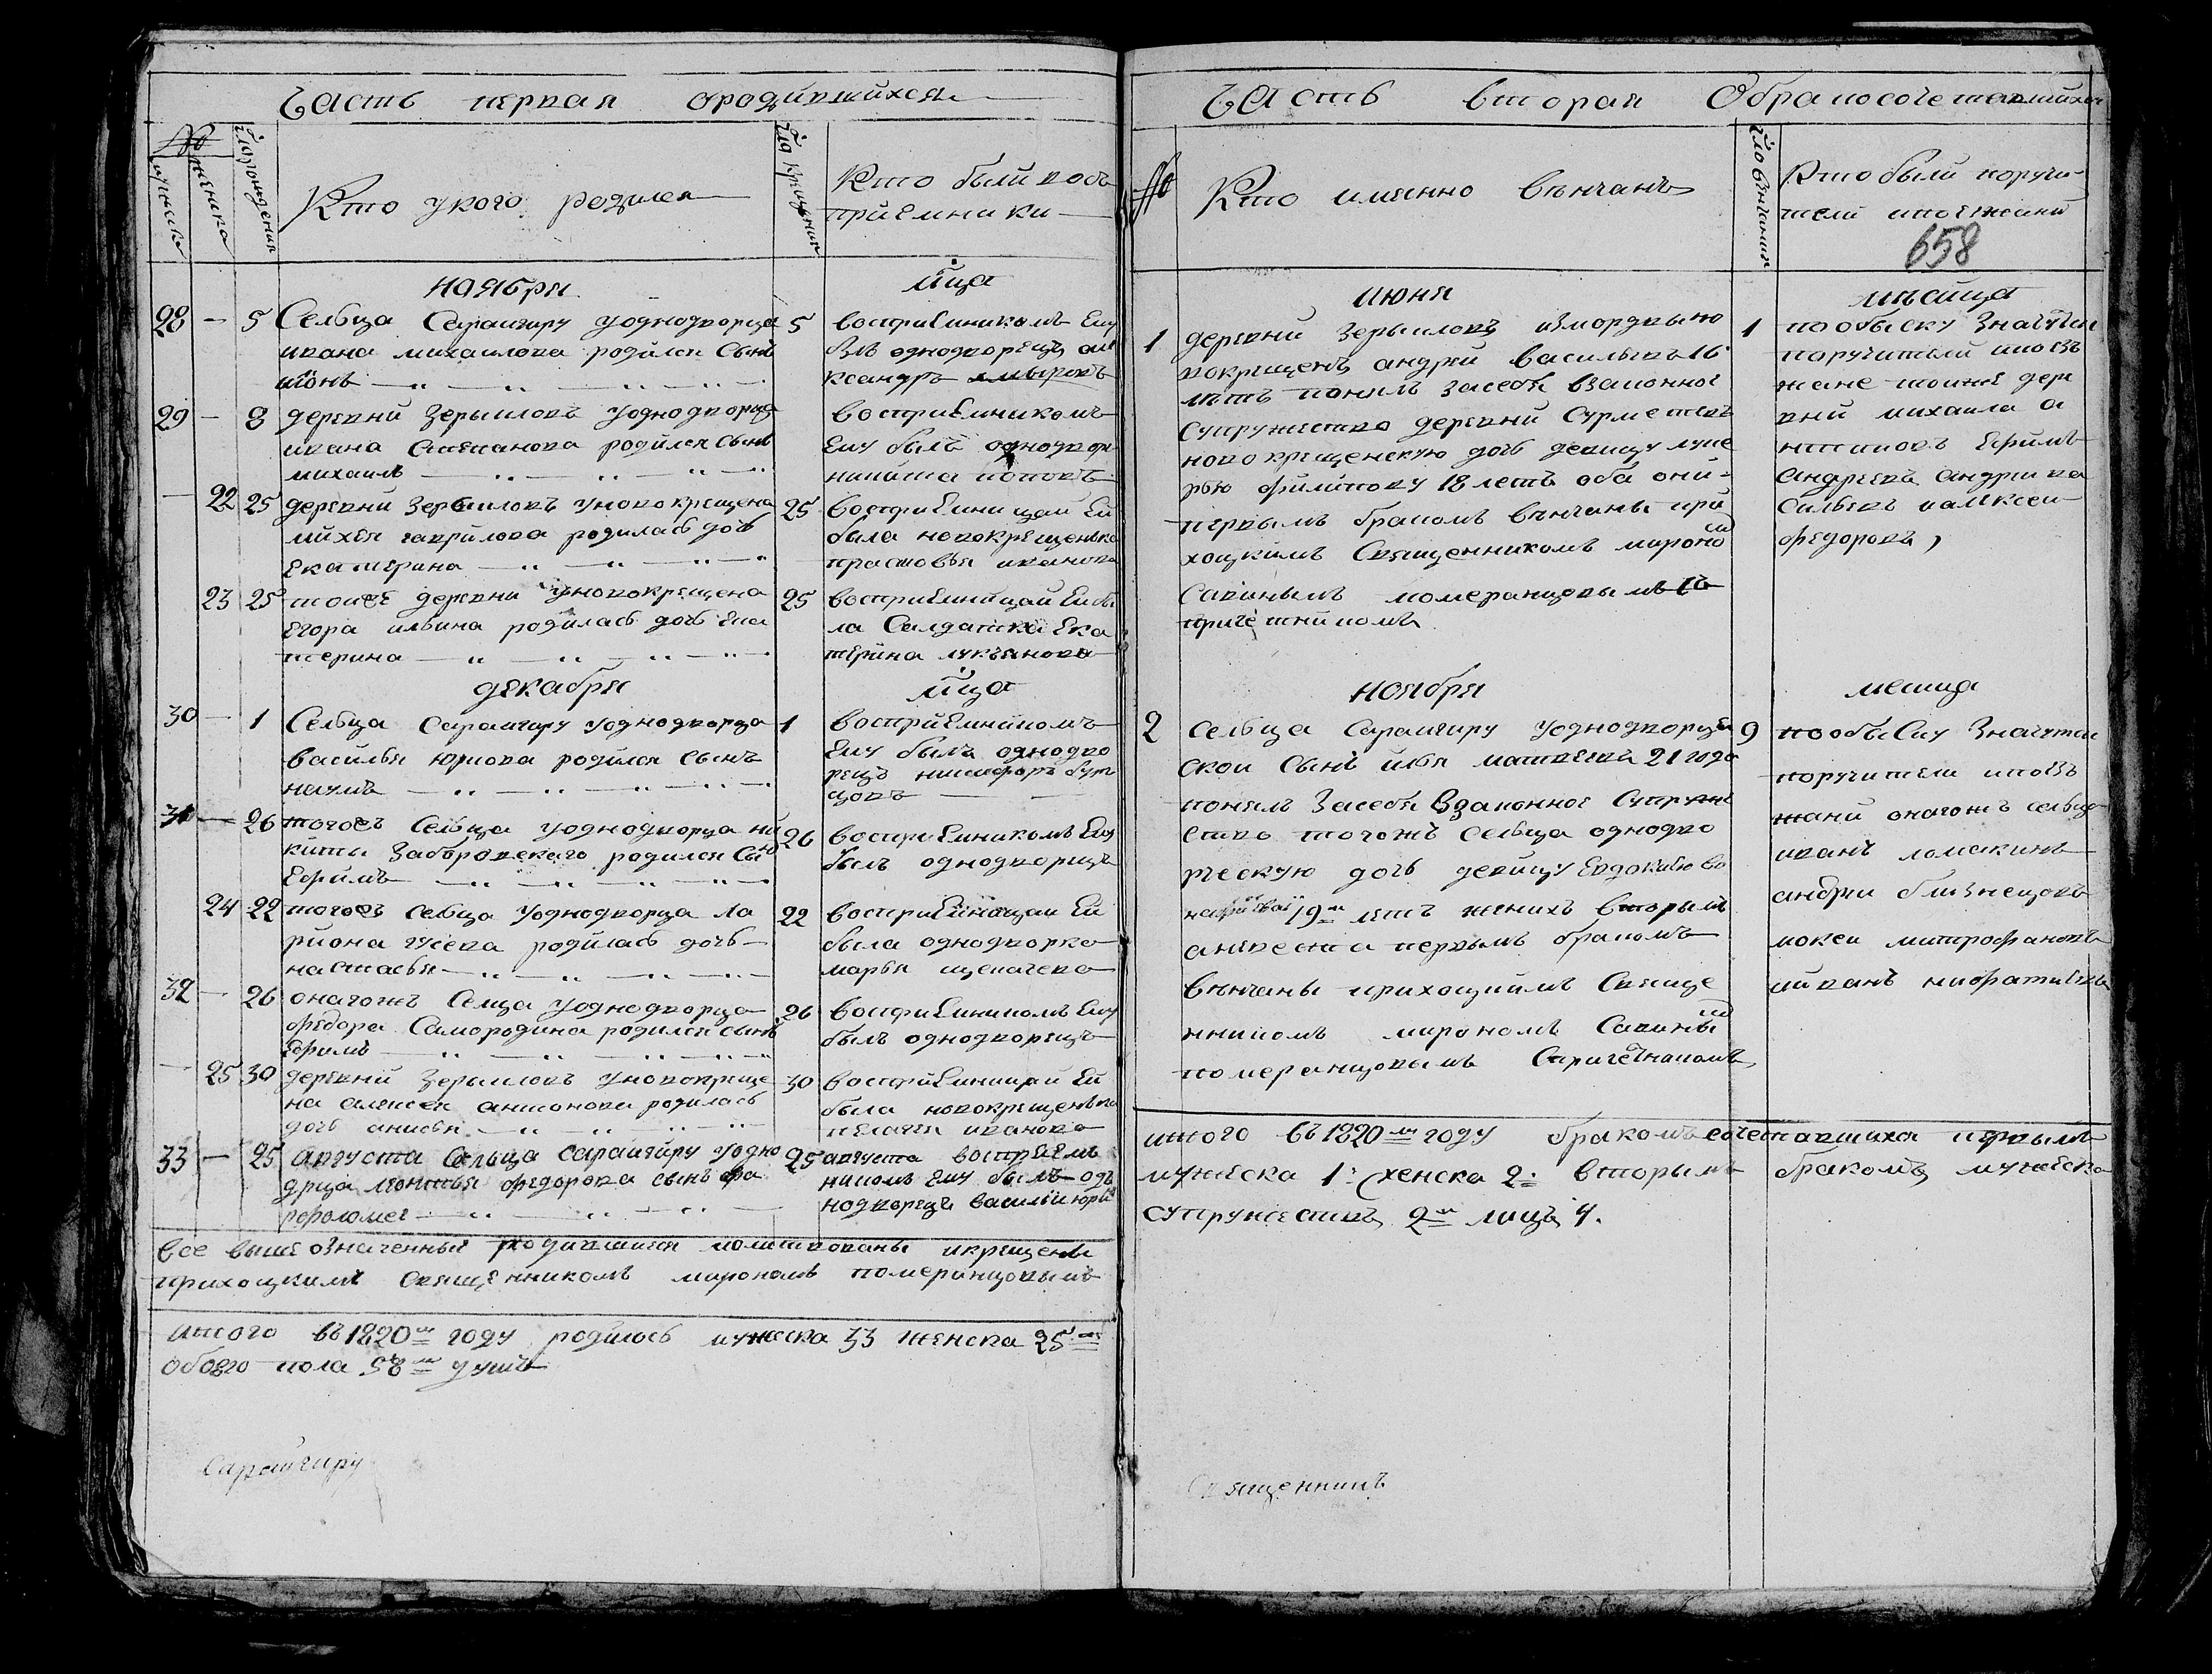 Часть первая ородившихся
№
мужеска
женска
Ча рождения
Кто укого родился
Ча крещения
Кто были вос
приемники
ноября
мца
28 — 5 Сельца Сараигиру уоднодворца 5
ивана михаилова родился Сынъ
воспри Емникомъ Ему
29 — 8 деревни Зерыкловъ уоднодворца
ивана Степанова родился Сынъ
михаилъ
воспри Емникомъ
Ему былъ однодвор
— 22 25 деревни Зерыкловъ уновокрещена 25
михея гаврилова родилась дочь
Екатерина
воспри Емницаи Еи
была новокрещенька
прасковья иванова
23 25 тоиже деревни уновокрещена 25
Егора ильина родилась дочь Ека
терина
воспри Емницаи Еи бы
ла Салдатка Ека
терина лукъянова
декабря
мца
30 — 1 Сельца Сараигиру уоднодворца 1
василья юрьова родился Сынъ
наумъ
восприЕмникомъ
Ему былъ однодво
рецъ никифоръ
31 — 26 тогожъ Сельца уоднодворца ни 26
киты Заборовскаго родился Сы
Ефимъ
воспри Емникомъ Ему
былъ однодворецъ
24 22 тогожъ Сельца уоднодворца ла 22
риона гусева родилась дочь
настасья
восприЕмницаи Еи
была однодворка
марья
32 — 26 оногожъ Селца уоднодворца 26
федора Самородина родился сынъ
Ефимъ
воспри Емникомъ Ему
былъ однодворецъ
— 25 30 деревни Зерыкловъ уновокреще 30
на алексея антонова родилась
дочь анисья
восприЕмницаи Еи
была новокрещенька
пелагея иванова
33 — 25 августа Сельца Сараигиру уодно 25
дрца леонтья федорова сынъ
рфоломеи
августа восприЕм
никомъ Ему былъ од
нодворецъ василии юрь
все вышеозначенные родившиеся молитвованы икрещены
приходцкимъ Священникомъ мирономъ померанцовымъ
итого въ 1820м году родилось мужеска 33 женска 25
обоего пола 58м душъ
Сараигиру
Часть вторая Обракосочетавшихся
№
Кто имянно венчанъ
Чло венчания
Кто были поручи
тели ипоезжани
658
июня
месица
1 деревни Зерыкловъ измордвы но 1
вокрещенъ андреи васильевъ 16
летъ понялъ засебя взаконное
Супружество деревни Сурметевъ
новокрещенскую дочь девицу луке
рью филипову 18 летъ оба они
первымъ бракомъ венчаны при
ходцкимъ Священникомъ мироно
Савинымъ померанцовымъ съ
причетникомъ
пообыску Значутся
поручители ипоез
жане тоиже дере
вни михаила а
нтиповъ Ефимъ
андреевъ андреи ва
Сильевъ иалексеи
федоровъ,
ноября
месица
2 Сельца Сараигиру уоднодворце 9
скои Сынъ илья матвеевъ 21 года
понялъ Засебя Взаконное Супруже
ство тогожъ Сельца однодво
рческую дочь девицу Евдокию
19м летъ женихъ вторымъ
аневеста первымъ бракомъ
венчаны приходцкимъ Свяще
нникомъ мирономъ Савины
померанцовымъ Спричетникомъ
пообыску Значутся
поручители ипоез
жани оногожъ сельца
иванъ ломакинъ
андреи близнецовъ
мокеи митрофановъ
ииванъ
итого въ 1820м году бракомъ сочетавшиха первымъ
мужеска 1: женска 2: вторымъ бракомъ мужеска
Супружествъ 2м лицъ 4.
Священникъ